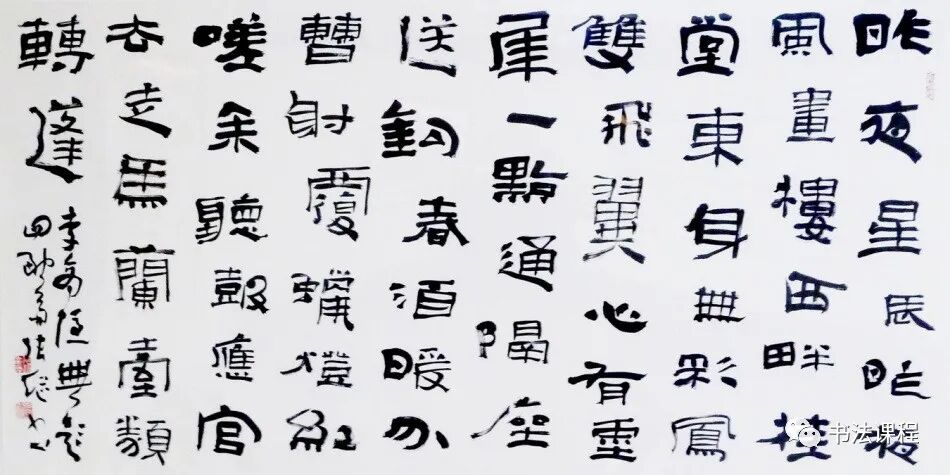 昨夜星辰昨夜
風畫樓西畔桂
堂東身無彩鳳
雙飛翼心有靈
犀一點通隔座
送鉤春酒暖分
曹射覆蠟燈紅
嗟余聽鼓應官
去走馬蘭臺類
轉蓬
李商隱無題
張繼書
书法课程